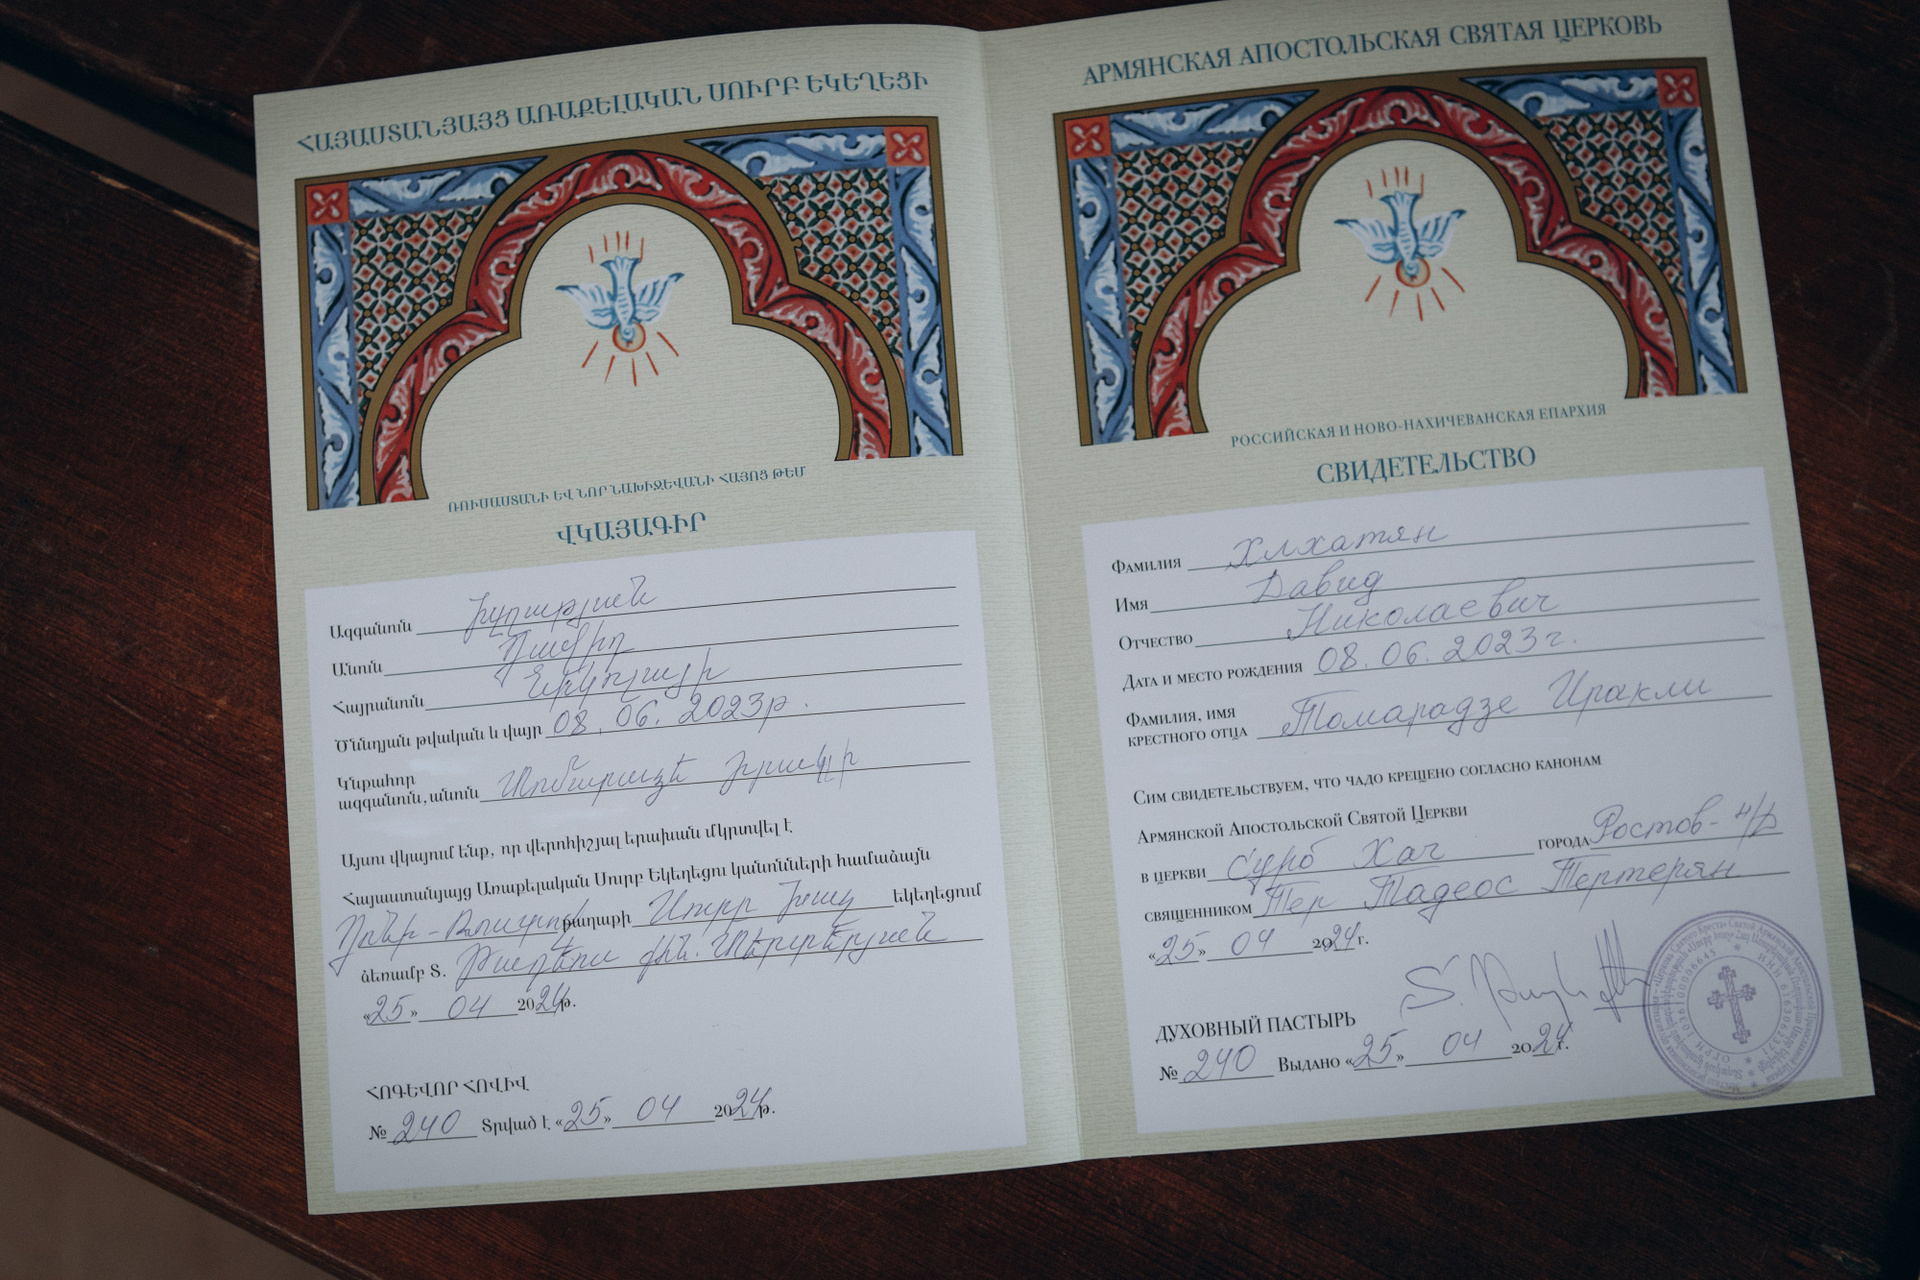 ՀԱՅԱՍՏԱՆՅԱՅՑ ԱՌԱՔԵԼԱԿԱՆ ՍՈՒՐԲ ԵԿԵՂԵՑԻ
ՌՈՒՍԱՍՏԱՆԻ ԵՎ ՆՈՐ ՆԱԽԻՋԵՎԱՆԻ ՀԱՅՈՑ ԹԵՄ
ՎԿԱՅԱԳԻՐ
Ազգանուն Խլղաթյան
Անուն Դավիդ
Հայրանուն Նիկոլայի
Ծննդյան թվական և վայր 08.06.2023թ.
Կնքահոր
ազգանուն, անուն
Այսու վկայում ենք, որ վերոհիշյալ երախան մկրտվել է
Հայաստանյայց Առաքելական Սուրբ Եկեղեցու կանոնների համաձայն
Դոնի-Ռոստով քաղաքի Սուրբ Խաչ եկեղեցում
ձեռամբ Տ. Թադեոս քհն. Տերտերյան
«25» 04 2024թ.
ՀՈԳԵՎՈՐ ՀՈՎԻՎ
№ 240 Տրված է «25» 04 2024թ.
АРМЯНСКАЯ АПОСТОЛЬСКАЯ СВЯТАЯ ЦЕРКОВЬ
РОССИЙСКАЯ И НОВО-НАХИЧЕВАНСКАЯ ЕПАРХИЯ
СВИДЕТЕЛЬСТВО
Фамилия Хлхатян
Имя Давид
Отчество Николаевич
Дата и место рождения 08.06.2023г.
Фамилия, имя
крестного отца Томарадзе Иракли
Сим свидетельствуем, что чадо крещено согласно канонам
Армянской Апостольской Святой Церкви
в церкви Сурб Хач города Ростов-н/Д
священником Тер Тадеос Тертерян
«25» 04 2024г.
ДУХОВНЫЙ ПАСТЫРЬ
№ 240 Выдано «25» 04 2024г.